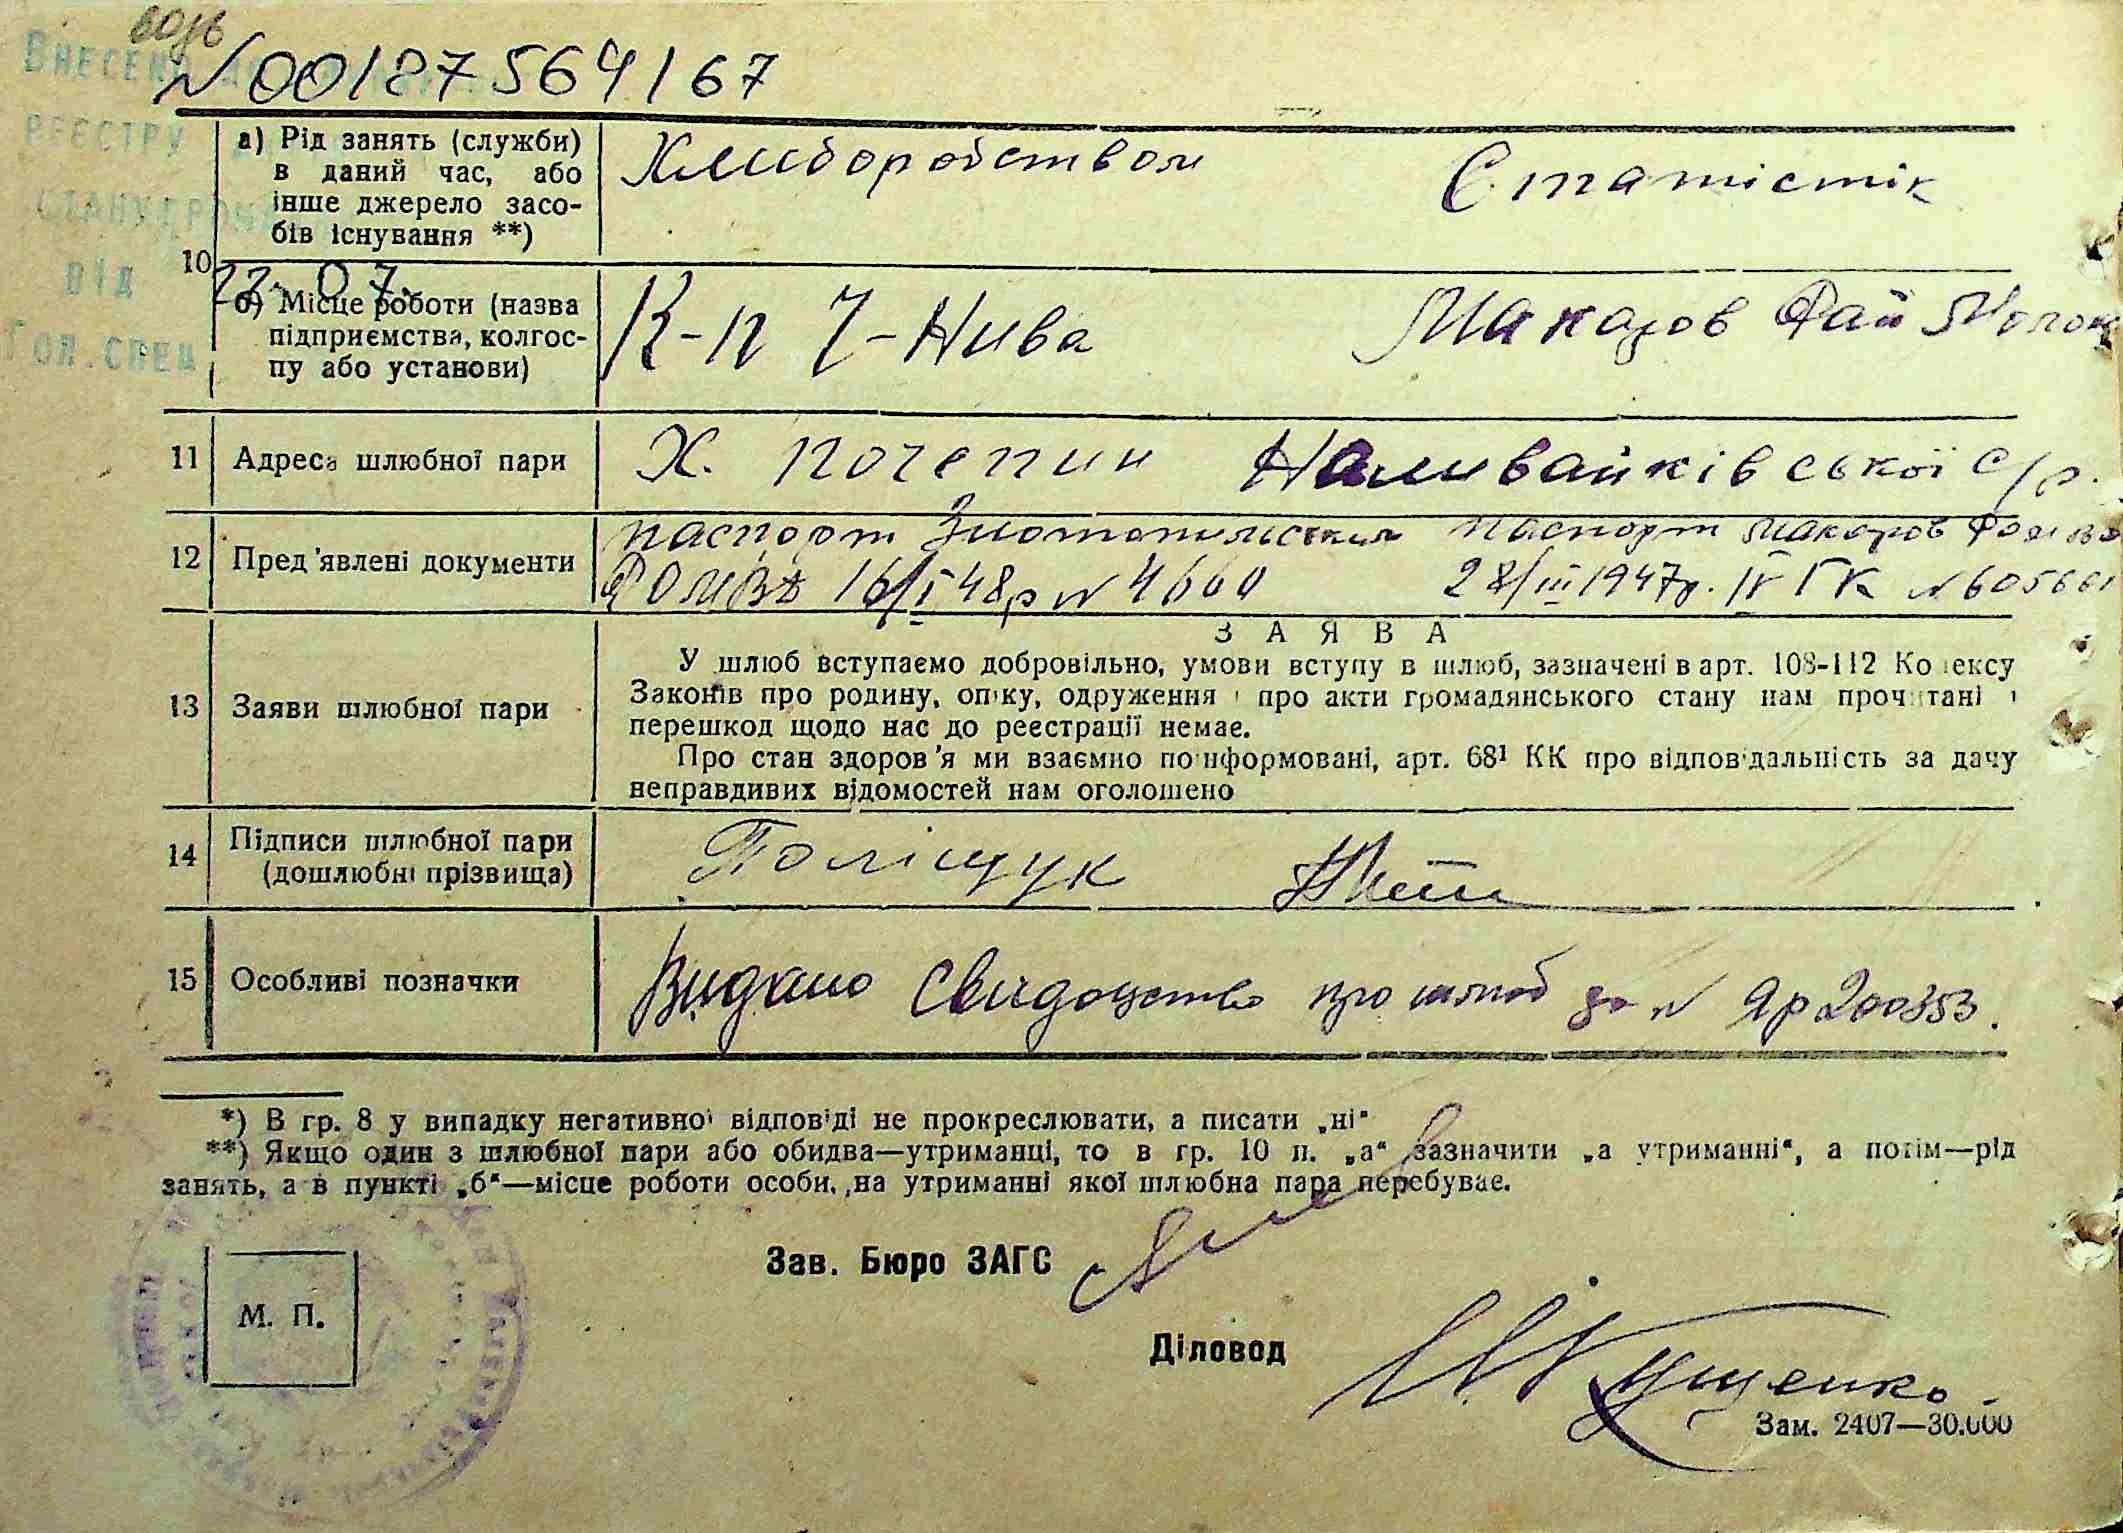 N00187564167
ВНЕСЕНО
РЕЄСТРУ
СТАНУ ГРОМ
ВІД
ГОЛ. СПЕЦ
22. 07.
10
а) Рід занять (служби) в даний час, або інше джерело засобів існування **)
Хлиборобством Статістік
б) Місце роботи (назва підприємства, колгоспу або установи)
К-п 7-Нива Макаров Рай Молок
11 Адреса шлюбної пари Х. Почепин Наливайківської с/р.
12 Пред'явлені документи паспорт паспорт Макаров
16/I 48р N 4660 28/III 1947р. IV ГК N 605661
З А Я В А
13 Заяви шлюбної пари
У шлюб вступаємо добровільно, умови вступу в шлюб, зазначені в арт. 108-112 Кодексу
Законів про родину, опіку, одруження і про акти громадянського стану нам прочитані і
перешкод щодо нас до реєстрації немає.
Про стан здоров'я ми взаємно поінформовані, арт. 68¹ КК про відповідальність за дачу
неправдивих відомостей нам оголошено
14 Підписи шлюбної пари
(дошлюбні прізвища)
Поліщук
15 Особливі позначки Видано Свидоцтво про шлюб за N Яр 200353.
*) В гр. 8 у випадку негативної відповіді не прокреслювати, а писати „ні"
**) Якщо один з шлюбної пари або обидва—утриманці, то в гр. 10 п. „а" зазначити „а утриманні", а потім—рід
занять, а в пункті „б"—місце роботи особи, на утриманні якої шлюбна пара перебуває.
Зав. Бюро ЗАГС
М. П.
Діловод
Зам. 2407—30.000